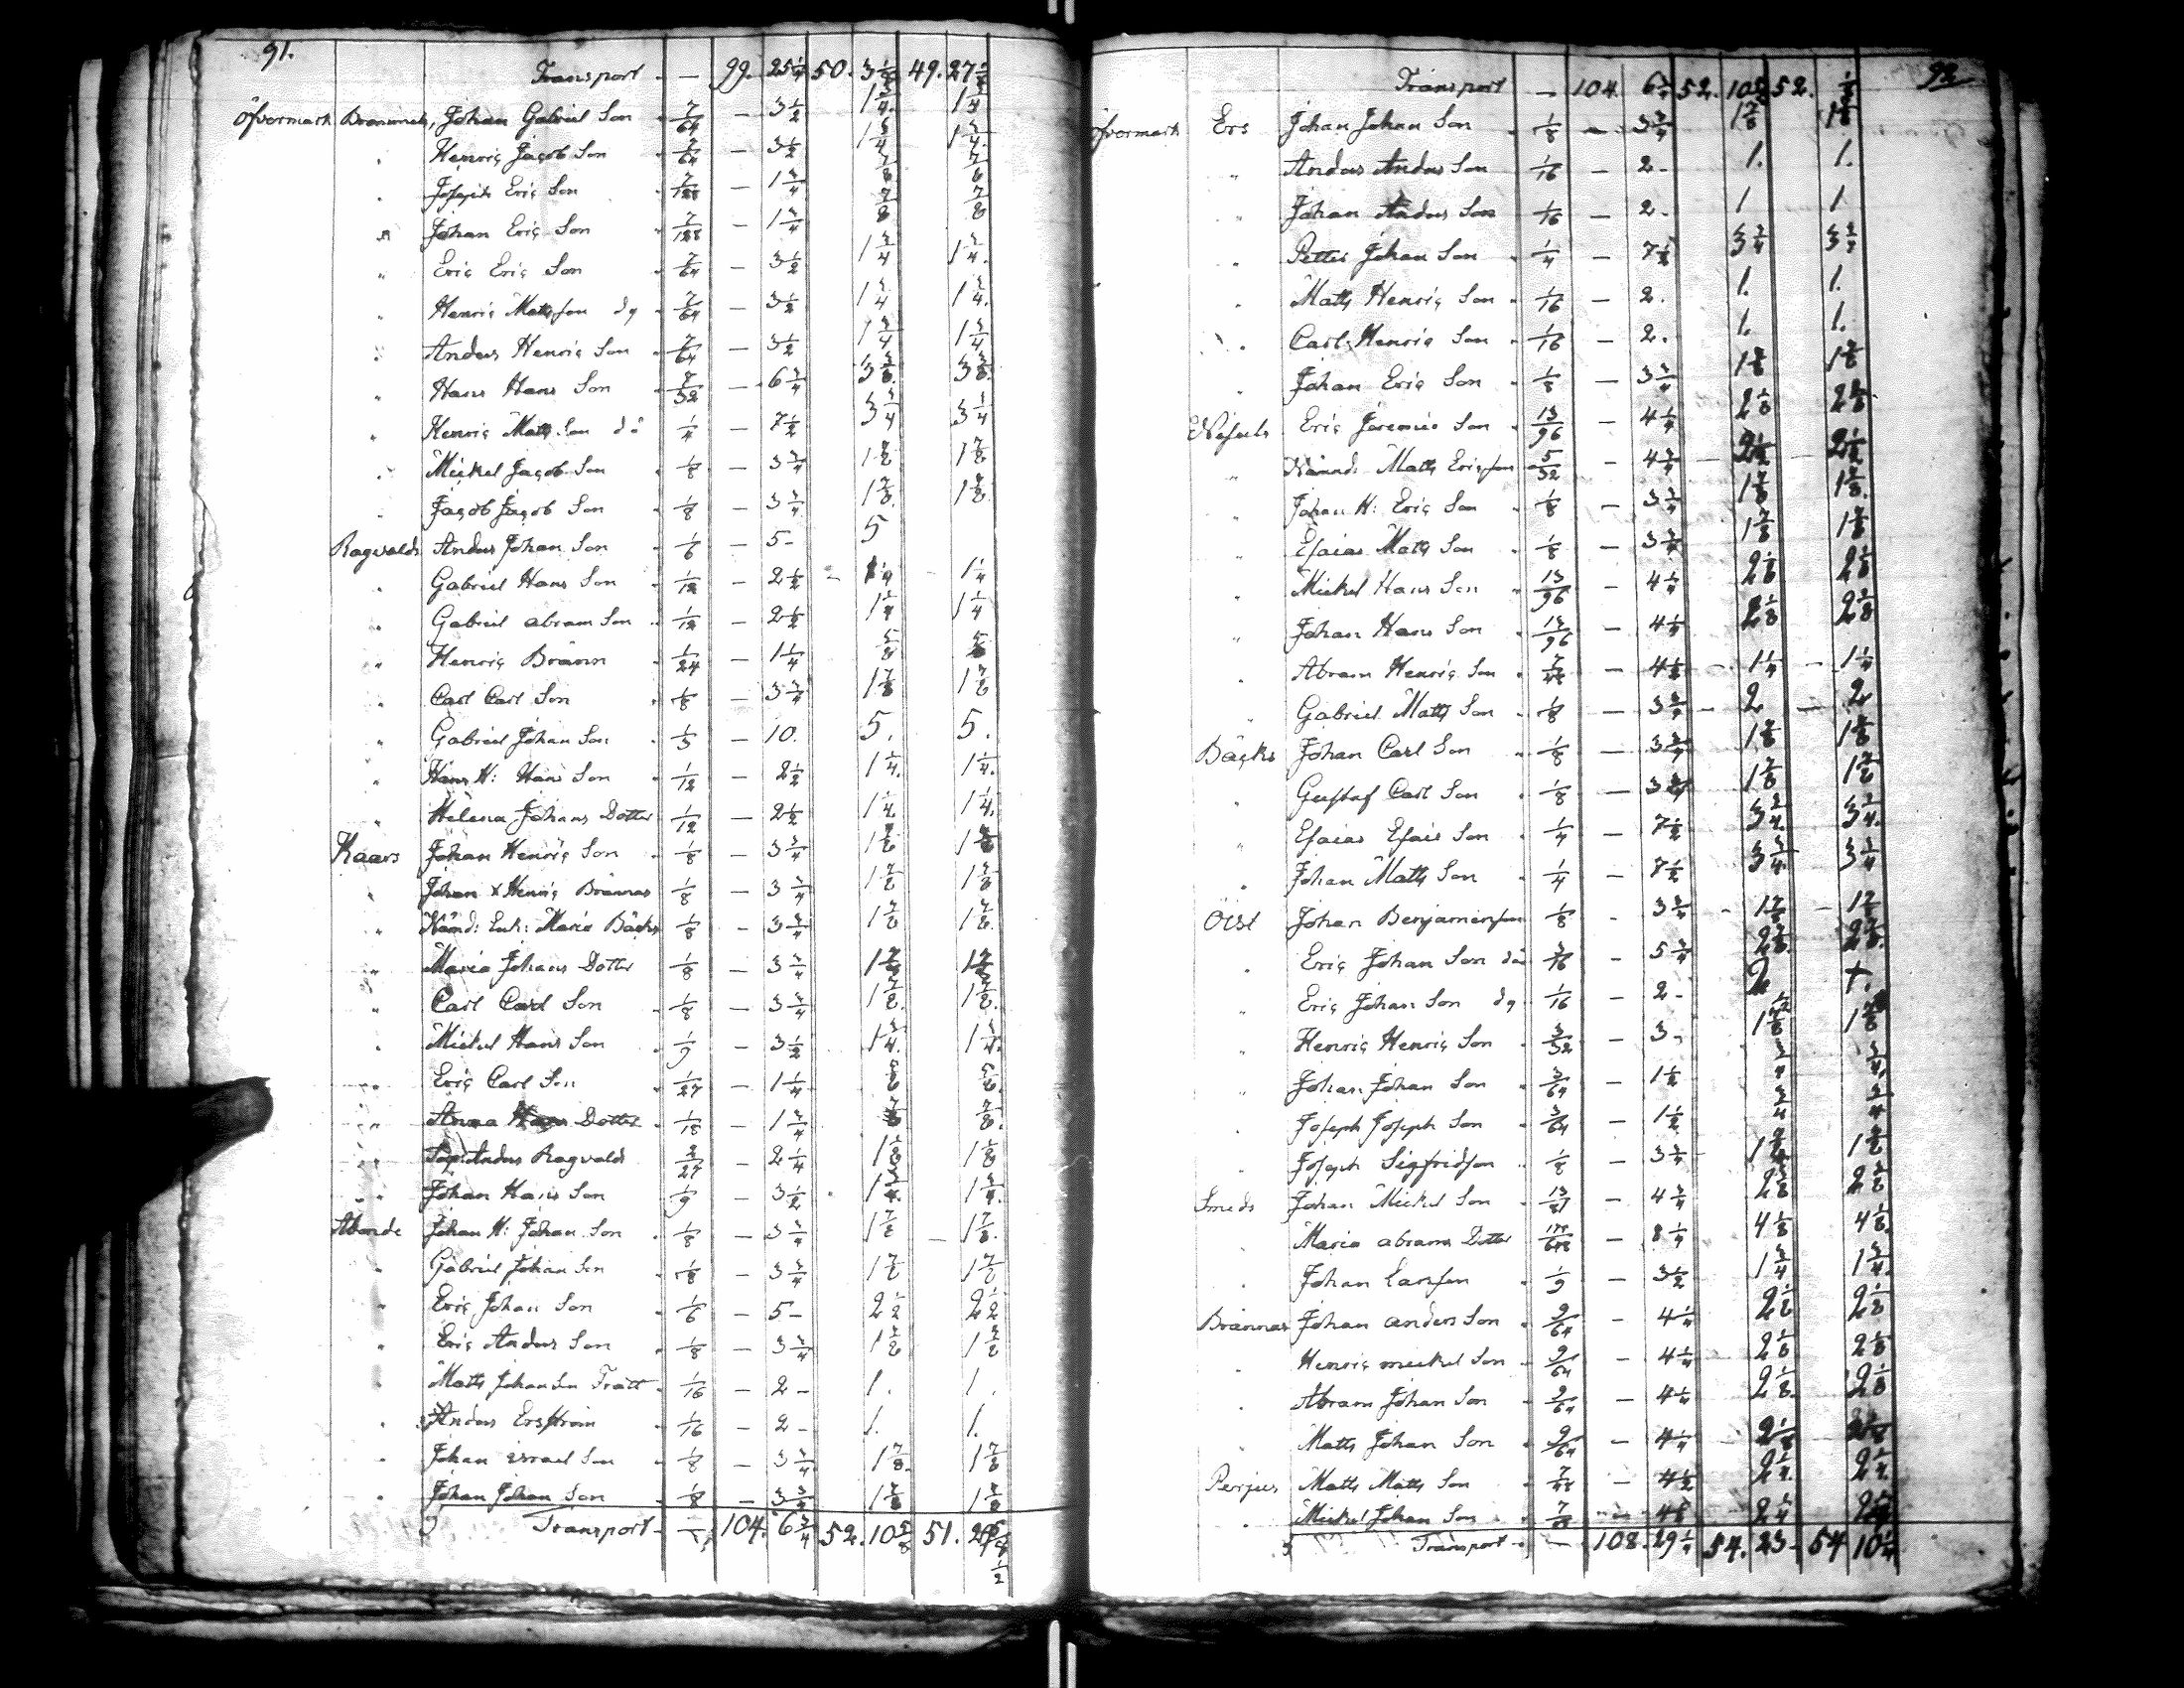 91.
Transport - — 99. 25 1/4 50. 49. 27
Öfvermark Brannnils, Johan Gabriel Son 7/64 — 3 1/2 1 3/4. 1 3/4
" Henric Jacob Son 7/64 — 3 1/2 1 3/4 1 3/4.
" Joseph Eric Son 7/128 — 1 3/4 7/8 7/8
" Johan Eric Son 7/128 — 1 3/4 7/8 7/8
" Eric Eric Son 7/64 — 3 1/2 1 3/4 1 3/4.
" Henric Mattsson dy 7/64 — 3 1/2 1 3/4 1 3/4.
" Anders Henric Son 7/64 — 3 1/2 1 3/4 1 3/4
" Hans Hans Son /32 — 6 3/4 3 3/8. 3 3/8.
" Henric Matts Son dä 1/4 — 7 1/2 3 3/4 3 3/4
" Mickel Jacob Son 1/8 — 3 3/4 1 7/8 1 7/8
" Jacob Jacob Son 1/8 — 3 3/4 1 7/8. 1 7/8.
Ragvalds Anders Johan Son 1/6 — 5 - 5
" Gabriel Hans Son 1/12 — 2 1/2 - 1 1/4 - 1 1/4
" Gabriel abram Son 1/12 — 2 1/2 1 1/4 1 1/4
" Henric Brånn 1/24 — 1 1/4 5/8 5/8
" Carl Carl Son 1/8 — 3 3/4 1 7/8 1 7/8
" Gabriel Johan Son 1/3 — 10. 5. 5.
" Hans H: Hans Son 1/12 — 2 1/2 1 1/4. 1 1/4.
" Helena Johans Dotter 1/12 — 2 1/2 1 1/4. 1 1/4.
Kaars Johan Henric Son 1/8 — 3 3/4 1 7/8 1 7/8
" Johan & Henric Brännas 1/8 — 3 3/4 1 7/8 1 7/8
" Nämd: Enk: Maria Bäcks 1/8 — 3 3/4 1 7/8 1 7/8.
" Maria Johans Dotter 1/8 — 3 3/4 1 7/8 1 7/8
" Carl Carl Son 1/8 — 3 3/4 1 7/8. 1 7/8.
" Mickel Hans Son 1/9 — 3 1/2 1 3/4. 1 3/4.
" Eric Carl Son 1/27 — 1 1/4 5/8 5/8.
" Anna Hans Dotter 1/18 — 1 3/4 7/8 7/8.
" Anders Ragvalds 2/27 — 2 1/4 1 1/8 1 1/8
" Johan Hans Son 1/9 — 3 1/2 1 3/4. 1 3/4.
Johan H: Johan Son 1/8 — 3 3/4 1 7/8 — 1 7/8.
" Gabriel Johan Son 1/8 — 3 3/4 1 7/8 1 7/8
" Eric Johan Son 1/6 — 5 - 2 1/2 2 1/2
" Eric Anders Son 1/8 — 3 3/4 1 7/8 1 7/8
" Matts Johan Son Trått 1/16 — 2 - 1. 1.
" Anders Ersström 1/16 — 2 - 1. 1.
" Johan israel Son 1/8 — 3 3/4 1 7/8. 1 7/8
" Johan Johan Son 1/8 — 3 3/4 1 7/8 1 7/8
Transport - — 104. 6 3/4 52. 10 5/8 51.
92
Transport — 104. 6 3/4 52. 10 5/8 52.
Öfvermark Ers Johan Johan Son 1/8 — 3 3/4 1 7/8 1 7/8
" Anders Anders Son 1/16 — 2 - 1. 1.
" Johan Anders Son 1/16 — 2 - 1 1
" Petter Johan Son 1/4 — 7 1/2 3 3/4 3 3/4
" Matts Henric Son 1/16 — 2. 1. 1.
" Carl Henric Son 1/16 — 2. 1. 1.
" Johan Eric Son 1/8 — 3 3/4 1 7/8 1 7/8
Eric Jeremie Son 13/96 — 4 1/4 2 1/8 2 1/8
" Nämnd: Matts Ericsson 5/32 — 4 3/4 — 2 1/2 — 2 1/2
" Johan H: Eric Son 1/8 — 3 3/4 1 7/8 1 7/8.
" Esaias Matts Son 1/8 — 3 3/4 1 7/8 1 7/8
" Mickel Hans Son 13/96 — 4 1/4 2 1/8 2 1/8
" Johan Hans Son 13/96 — 4 1/4 2 1/8 2 1/8
" Abram Henric Son 7/48 — 4 1/2 - 1 1/4 - 1 1/4
" Gabriel Matts Son 1/8 — 3 3/4 - 2 — 2
Bäcks Johan Carl Son 1/8 — 3 3/4 1 7/8 1 7/8
" Gustaf Carl Son 1/8 — 3 3/4 1 7/8 1 7/8
" Esaias Esais Son 1/4 — 7 1/2 3 3/4. 3 3/4.
" Johan Matts Son 1/4 — 7 1/2 3 3/4. 3 3/4
Öist Johan Benjaminsson 1/8 - 3 3/4 - 1 7/8 - 1 7/8
" Eric Johan Son dä 3/16 — 5 3/4 2 7/8 2 7/8.
" Eric Johan Son dy 1/16 — 2 - 2 +.
" Henric Henric Son 3/32 — 3 -
" Johan Johan Son 3/64 — 1 1/2 3/4 3/4.
" Joseph Joseph Son 3/64 — 1 1/2 3/4 3/4
" Joseph Sigfridsson 1/8 — 3 3/4 1 7/8 1 7/8
Smeds Johan Mickel Son 13/81 — 4 3/4 2 3/8 2 3/8
" Maria abrams Dotter /648 — 8 1/4 4 1/8 4 1/8.
" Johan Larsson 1/9 — 3 1/2 1 3/4 1 3/4.
Brännas Johan anders Son 9/64 — 4 1/4 2 1/8 2 1/8
" Henric mickel Son 9/64 — 4 1/4 2 1/8 2 1/8
" Abram Johan Son 9/64 — 4 1/4 2 1/8. 2 1/8
" Matts Johan Son 9/64 — 4 1/4 - 2 1/8 - 2 1/8
Perjus Matts Matts Son 7/48 — 4 1/2 2 1/4. 2 1/4.
" Mickel Johan Son 7/48 — 4 1/2 2 1/4
Transport - — 108. 29 1/4 54. 23 - 54 10 1/4